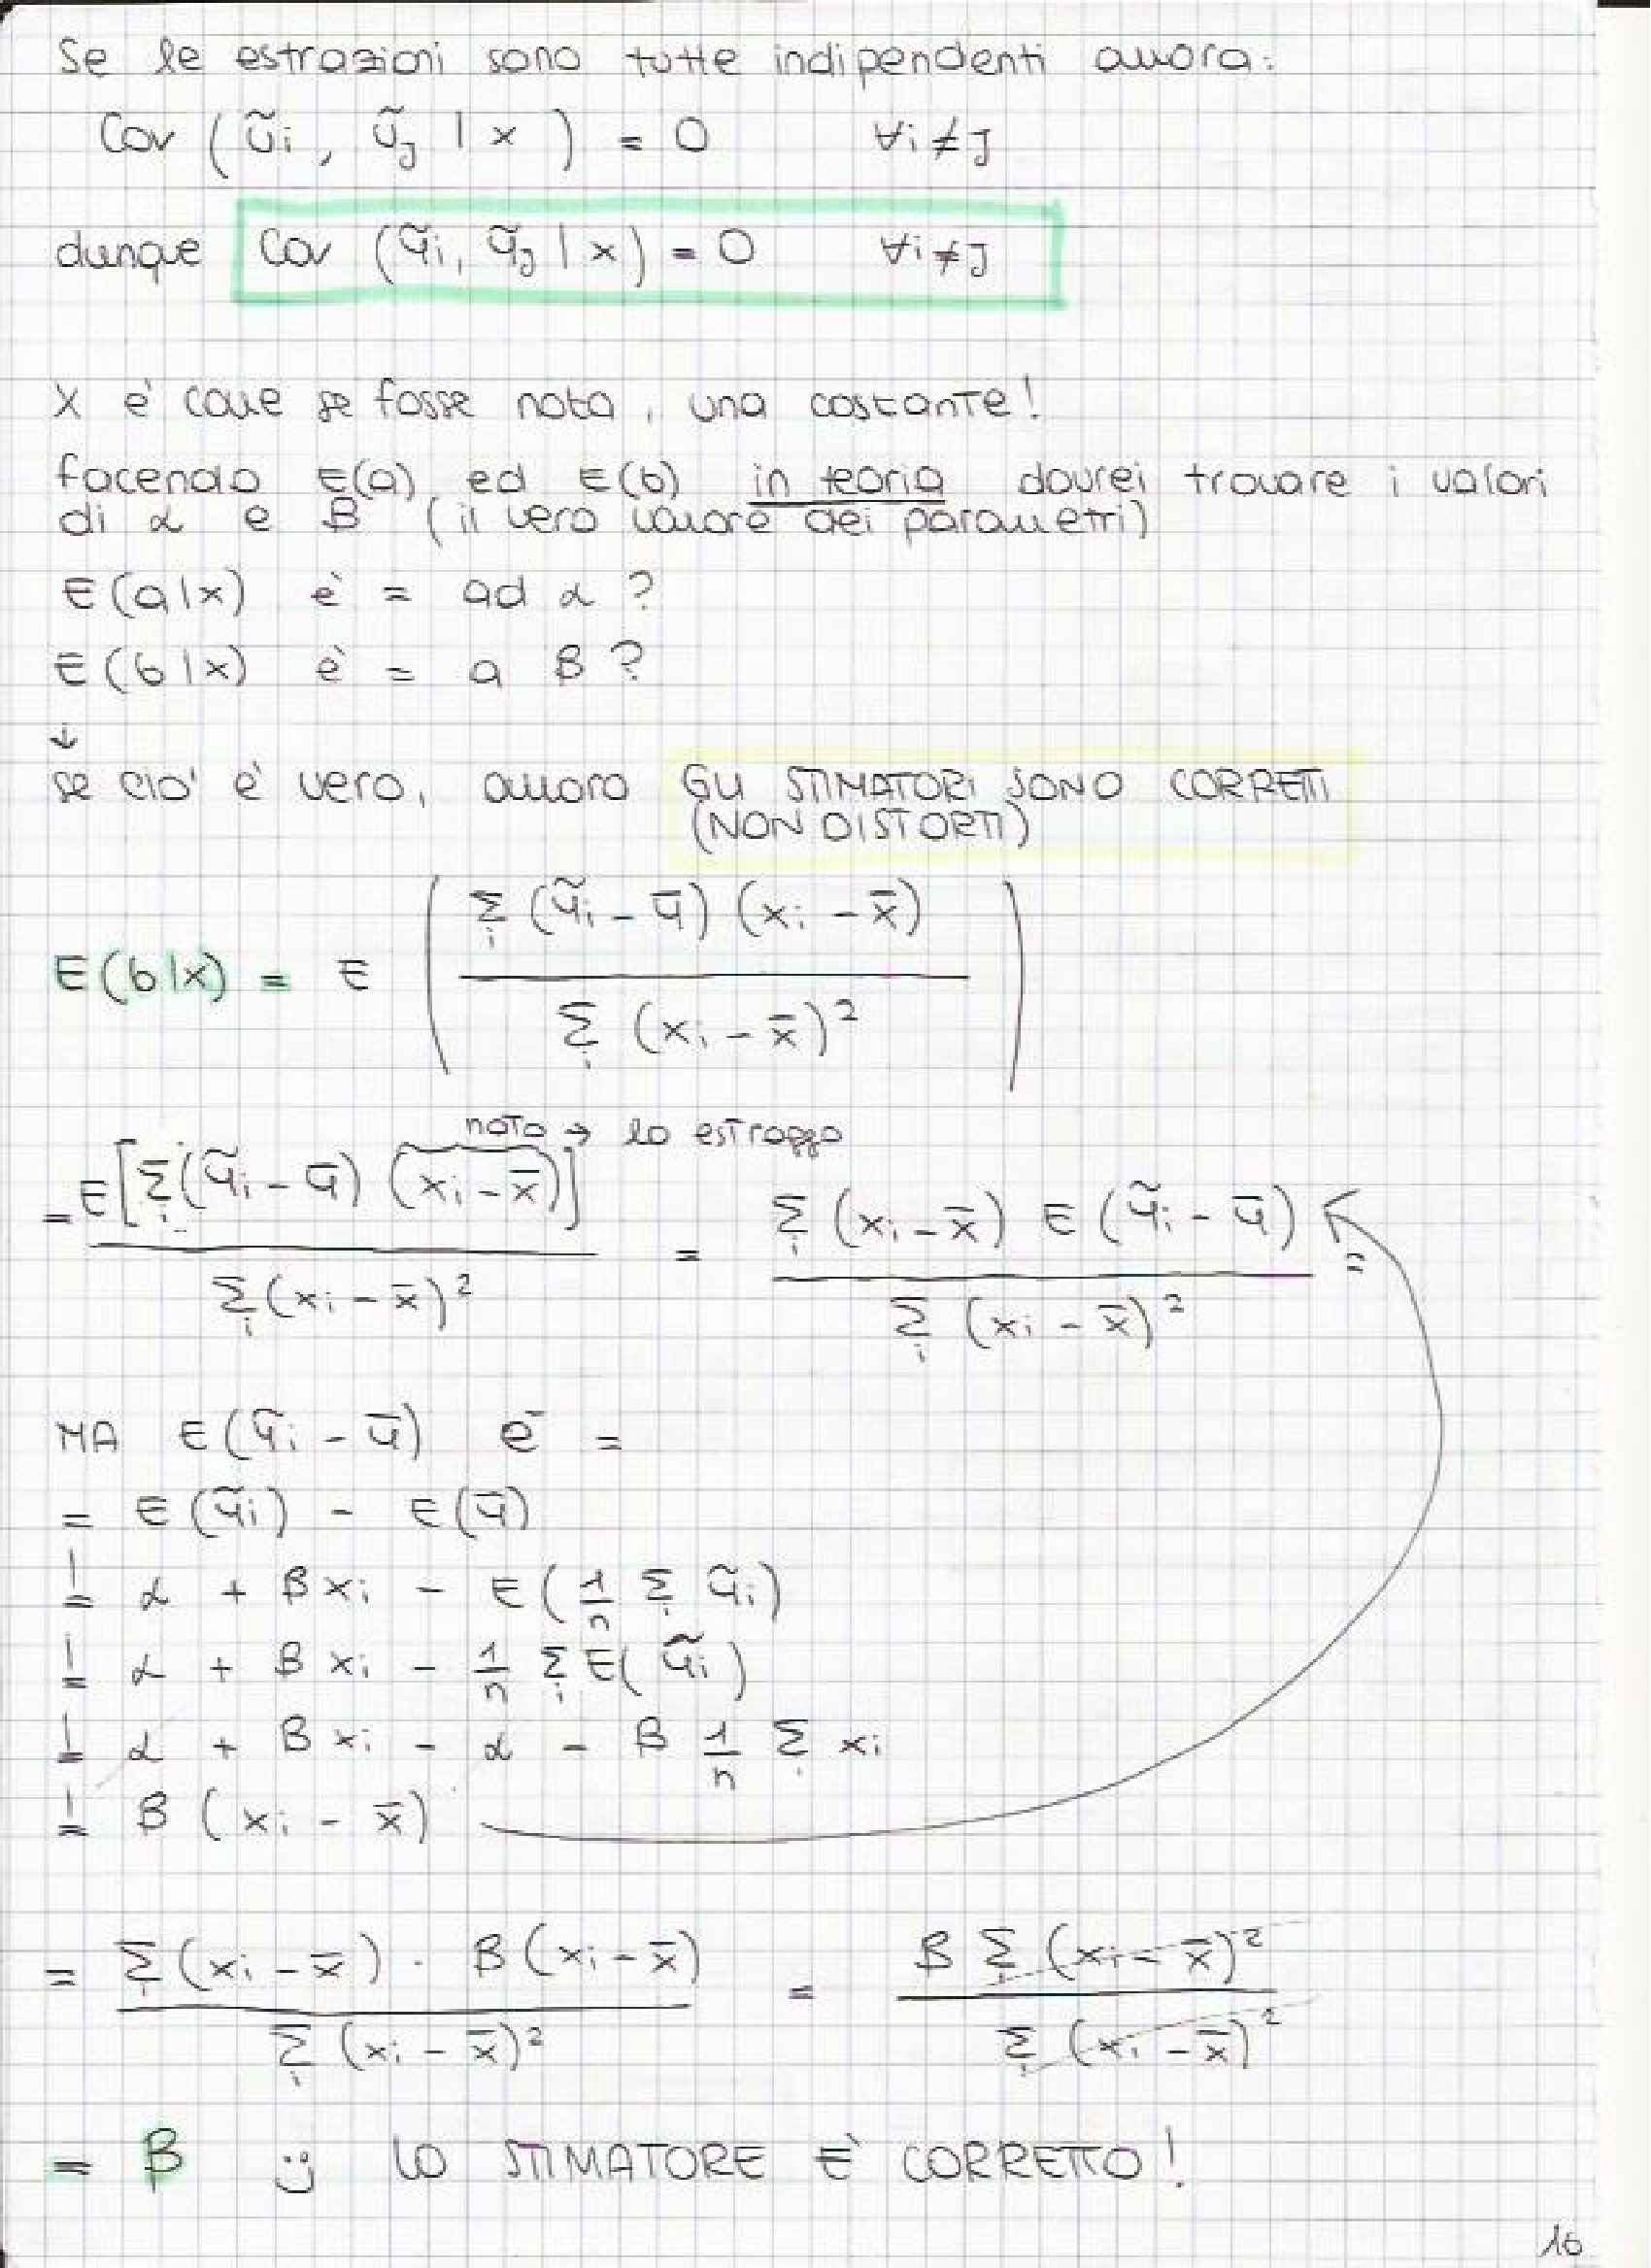 Se le estrazioni sono tutte indipendenti allora:
Cov (ũi, ũj | x) = 0 ∀i≠j
dunque Cov (ỹi, ỹj | x) = 0 ∀i≠j
X e' come se fosse nota, una costante!
facendo E(a) ed E(b) in teoria dovrei trovare i valori
di α e B (il vero valore dei parametri)
E(a|x) e' = ad α ?
E(b|x) e' = a B ?
↓
se cio' e' vero, allora GLI STIMATORI SONO CORRETTI
(NON DISTORTI)
E(b|x) = E ( Σi (ỹi - ȳ) (xi - x̄) / Σi (xi - x̄)² )
noto → lo estraggo
= E[Σi (ỹi - ȳ) (xi - x̄)] / Σi (xi - x̄)² = Σi (xi - x̄) E (ỹi - ȳ) / Σi (xi - x̄)² =
MA E(ỹi - ȳ) e' =
= E(ỹi) - E(ȳ)
= α + B xi - E(1/n Σi ỹi)
= α + B xi - 1/n Σi E(ỹi)
= α + B xi - α - B 1/n Σi xi
= B (xi - x̄)
= Σi (xi - x̄) · B (xi - x̄) / Σi (xi - x̄)² = B Σi (xi - x̄)² / Σi (xi - x̄)²
= B :) LO STIMATORE E' CORRETTO!
16